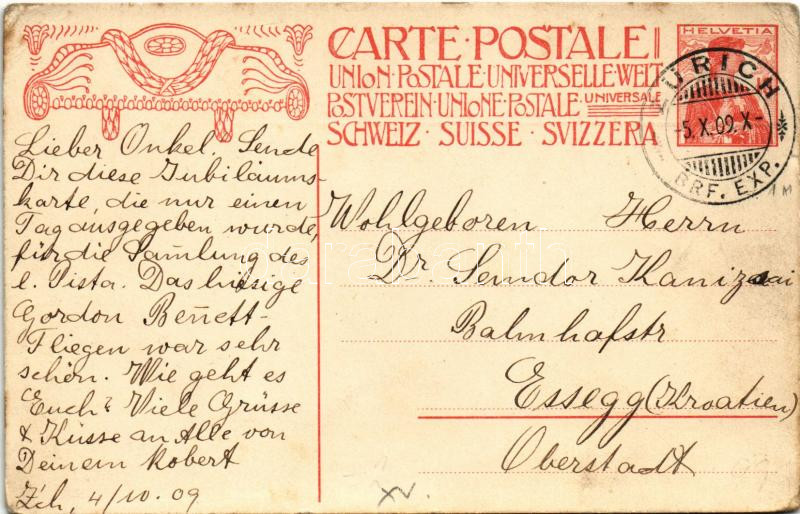 CARTE·POSTALE
UNION·POSTALE·UNIVERSELLE·WELT
POSTVEREIN·UNIONE·POSTALE·UNIVERSALE
SCHWEIZ·SUISSE·SVIZZERA
HELVETIA
ZÜRICH
-5.X.09.X-
BRF. EXP.
Lieber Onkel. Sende
Dir diese Jubiläums-
karte, die nur einen
Tag ausgegeben wurde,
für die Sam̄lung des
l. Pista. Das hiesige
Gordon Ben̄ett-
Fliegen war sehr
schön. Wie geht es
Euch? Viele Grüsse
& Küsse an Alle von
Deinem Robert
Z'ch, 4/10. 09
Wohlgeboren Herrn
Dr. Sandor Kanizsai
Bahnhofstr
Essegg (Kroatien)
Oberstadt
XV.